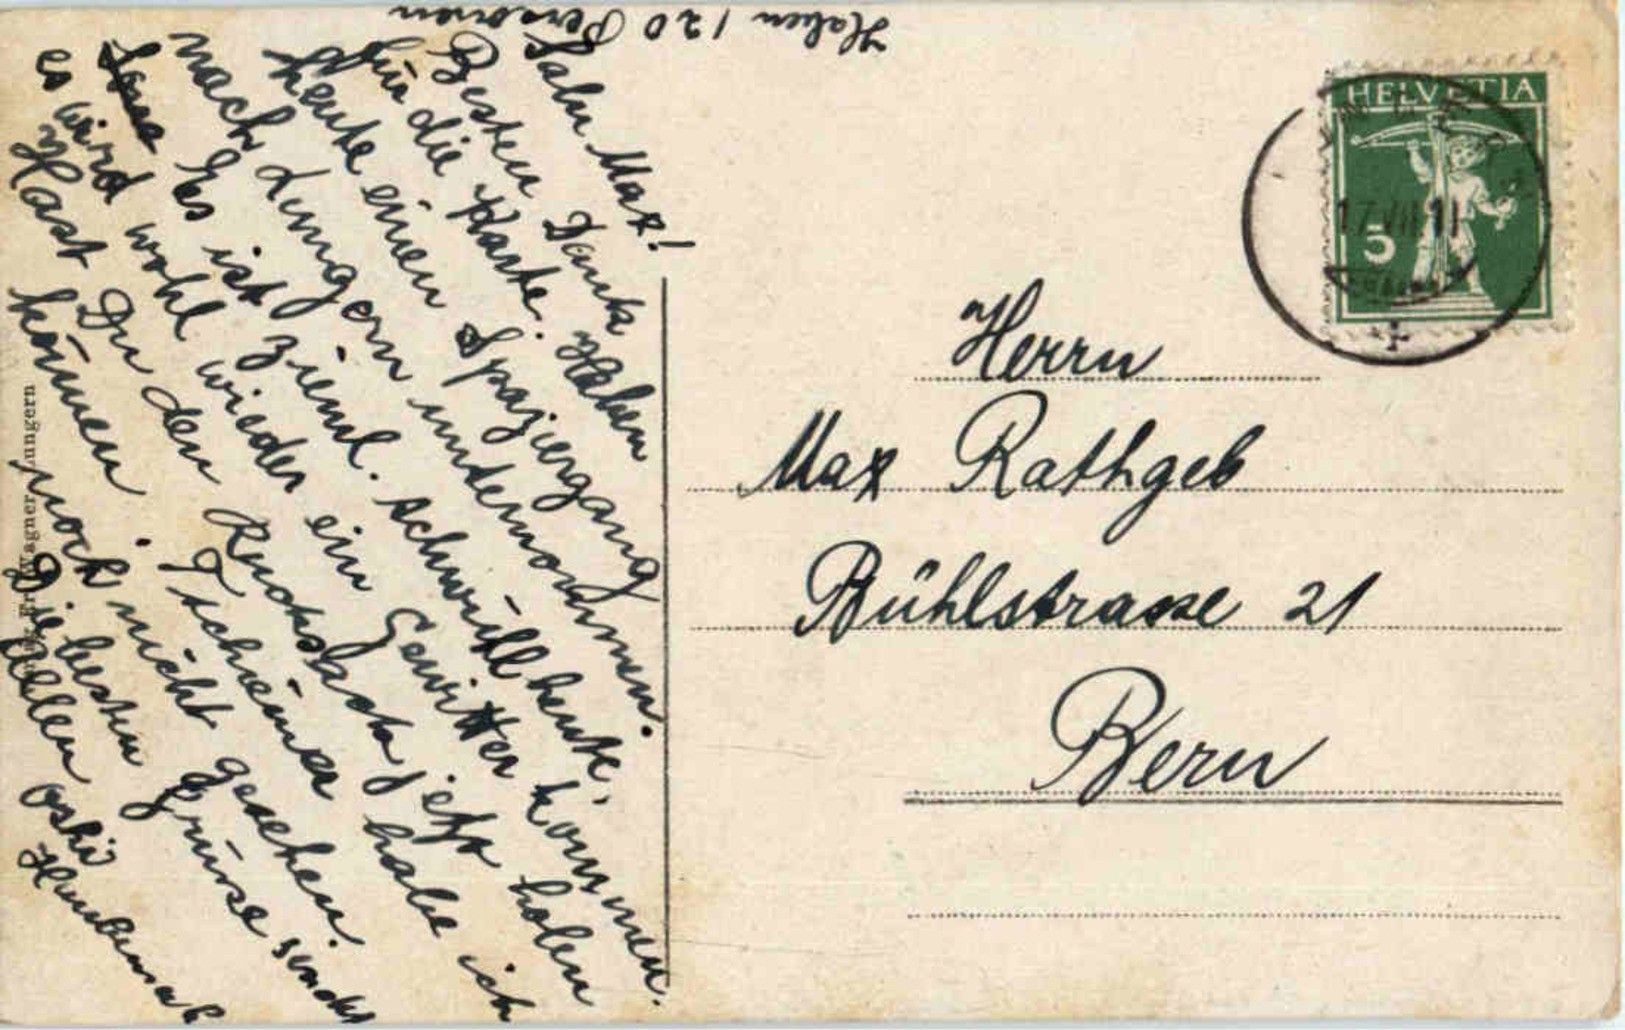 Haben 120 Personen
Salu Max!
Besten Dank
für die Karte. Haben
heute einen Spaziergang
nach Lungern unternommen.
Es ist zieml. schwüll heute,
es wird wohl wieder ein Gewitter kommen.
Hast Du den Rucksack jetz holen
können. Tscheimer habe ich
noch nicht gesehen.
Die besten Grüsse sendet
Allen
HELVETIA
5
17.VIII.11
Herrn
Max Rathgeb
Bühlstrasse 21
Bern
Wagner, Lungern